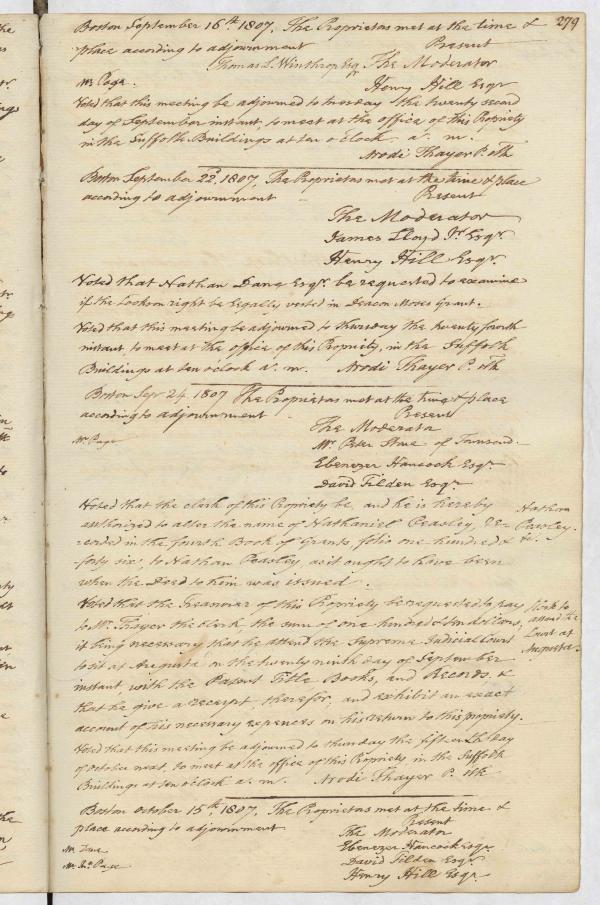 279
Boston September 16th 1807. The Proprietors met at the time &
place according to adjournment Present
Thomas L. Winthrop Esqr The Moderator
Mr Page. Henry Hill Esqr
Voted that this meeting be adjourned to tuesday the twenty second
day of September instant, to meet at the office of this Propriety
in the Suffolk Buildings at ten o'clock a. m.
Arodi Thayer P. Clk
Boston September 22d, 1807, The Proprietors met at the time & place
according to adjournment Present
The Moderator
James Lloyd Jr Esqr.
Henry Hill Esqr.
Voted that Nathan Dane Esqr. be requested to examine
if the right be legally vested in Deacon Moses Grant.
Voted that this meeting be adjourned to thursday the twenty fourth
instant, to meet at the office of this Propriety, in the Suffolk
Buildings at ten o'clock a. m. Arodi Thayer P. Clk
Boston Sepr 24. 1807 The Proprietors met at the time & place
according to adjournment Present
The Moderator
Mr Page Mr. Peter of Townsend.
Ebenezer Hancock Esqr.
David Tilden Esqr.
Voted that the clerk of this Propriety be, and he is hereby
authorized to alter the name of Nathaniel Peasley, re-
corded in the fourth Book of Grants, folio one hundred &
forty six, to Nathan Peasley, as it ought to have been
when the Deed to him was issued.
Nathan
Peasley.
&c.
Voted that the Treasurer of this Propriety be requested to pay
to Mr. Thayer the clerk, the sum of one hundred & ten dollars,
it being necessary that he attend the Supreme Judicial Court
to sit at Augusta on the twenty ninth day of September
instant, with the Patent Title Books, and Records, &
that he give a receipt, therefor, and exhibit an exact
account of his necessary expences on his return to this propriety.
Clerk to
attend the
Court at
Augusta.
Voted that this meeting be adjourned to thursday the fifteenth day
of October next, to meet at the office of this Propriety, in the Suffolk
Buildings at ten o'clock a. m. Arodi Thayer P. Clk
Boston October 15th, 1807. The Proprietors met at the time &
place according to adjournment Present
The Moderator
Mr Ebenezer Hancock Esqr.
Mr Page David Tilden Esqr.
Henry Hill Esqr.